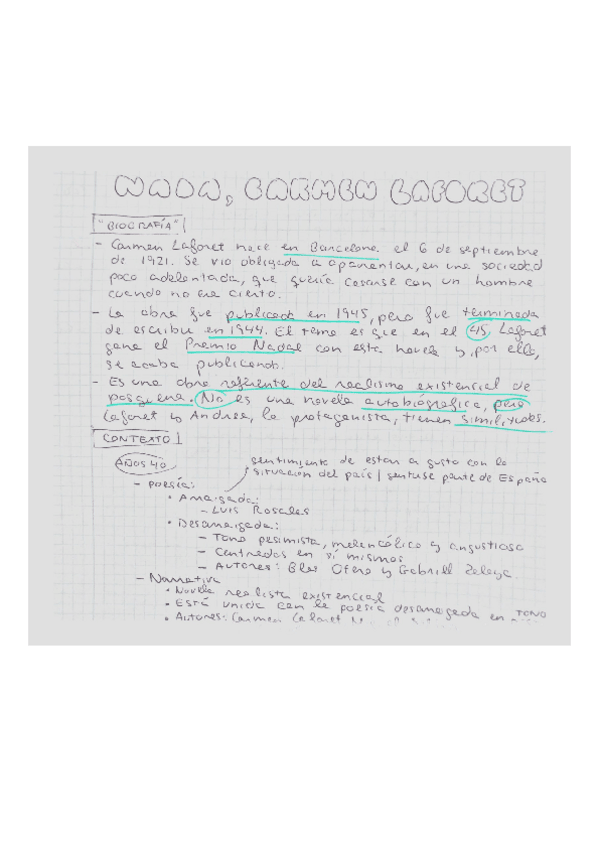 NADA, CARMEN LAFORET
"BIOGRAFÍA"
- Carmen Laforet nace en Barcelona el 6 de septiembre
de 1921. Se vio obligada a aparentar, en una sociedad
poco adelantada, que quería casarse con un hombre
cuando no era cierto.
- La obra fue publicada en 1945, pero fue terminada
de escribir en 1944. El tema es que en el 45, Laforet
gana el Premio Nadal con esta novela y, por ello,
se acaba publicando.
- Es una obra referente del realismo existencial de
posguerra. No es una novela autobiográfica, pero
Laforet y Andrea, la protagonista, tienen similitudes.
CONTEXTO
AÑOS 40
sentimiento de estar a gusto con la
situación del país / sentirse parte de España
- Poesía:
• Arraigada:
- Luis Rosales
• Desarraigada:
- Tono pesimista, melancólico y angustioso
- Centrados en sí mismos
- Autores: Blas Otero y Gabriel Celaya.
- Narrativa
• Novela realista existencial
• Está unida con la poesía desarraigada en TONO
• Autores: Carmen Laforet